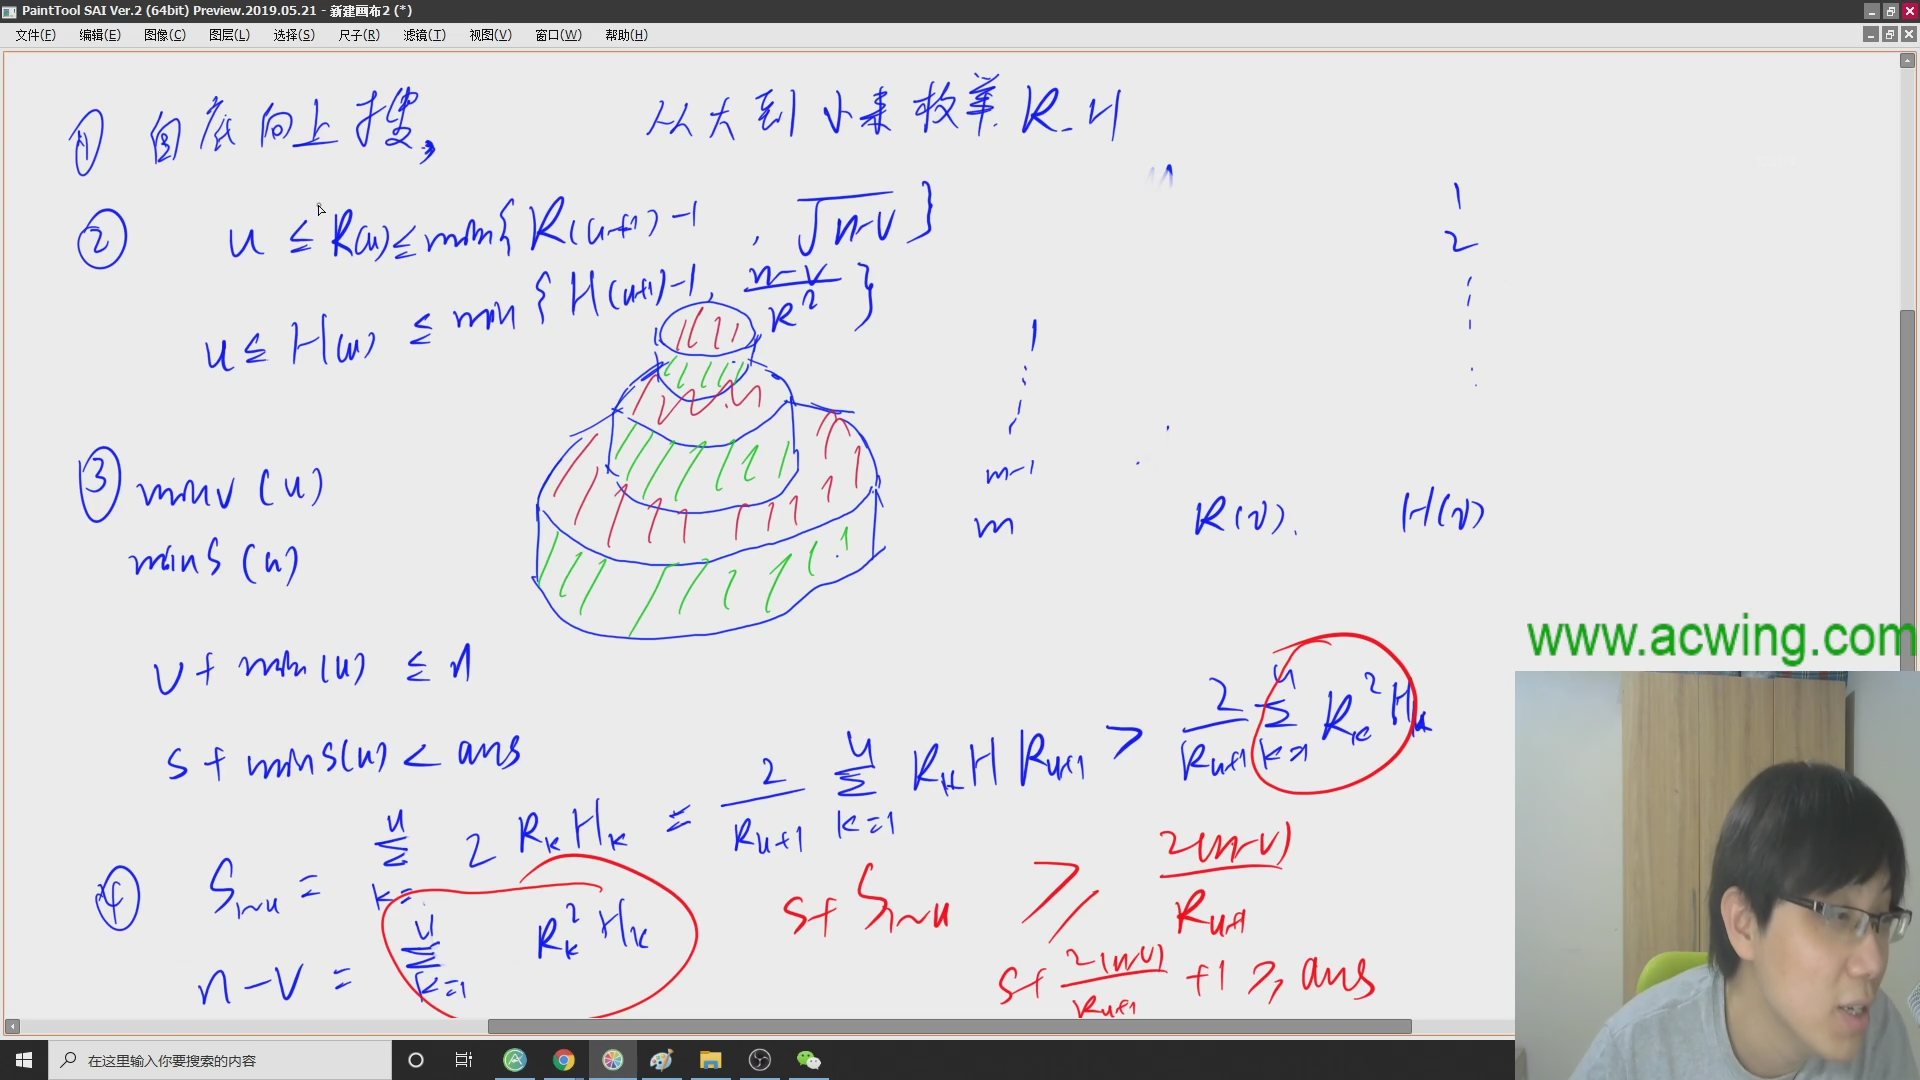 PaintTool SAI Ver.2 (64bit) Preview.2019.05.21 - 新建画布2 (*)
文件(F) 编辑(E) 图像(C) 图层(L) 选择(S) 尺子(R) 滤镜(T) 视图(V) 窗口(W) 帮助(H)
① 自底向上搜, 从大到小来枚举 R.H
② u ≤ R(u) ≤ min{ R(u+1)-1 , √n-v }
u ≤ H(u) ≤ min { H(u+1)-1, n-v / R² }
1
2
1
m-1
m
R(v). H(v)
③ minv (u)
minS (u)
v + min(u) ≤ n
s + minS(u) < ans
④ S1~u = u Σ k= 2 Rk Hk = 2/Ru+1 u Σ k=1 Rk H Ru+1 > 2/Ru+1 u Σ k=1 Rk² Hk
n-v = u Σ k=1 Rk² Hk
s+ S1~u ≥ 2(n-v) / Ru+1
s+ 2(n-v) / Ru+1 +1 ≥ ans
www.acwing.com
在这里输入你要搜索的内容